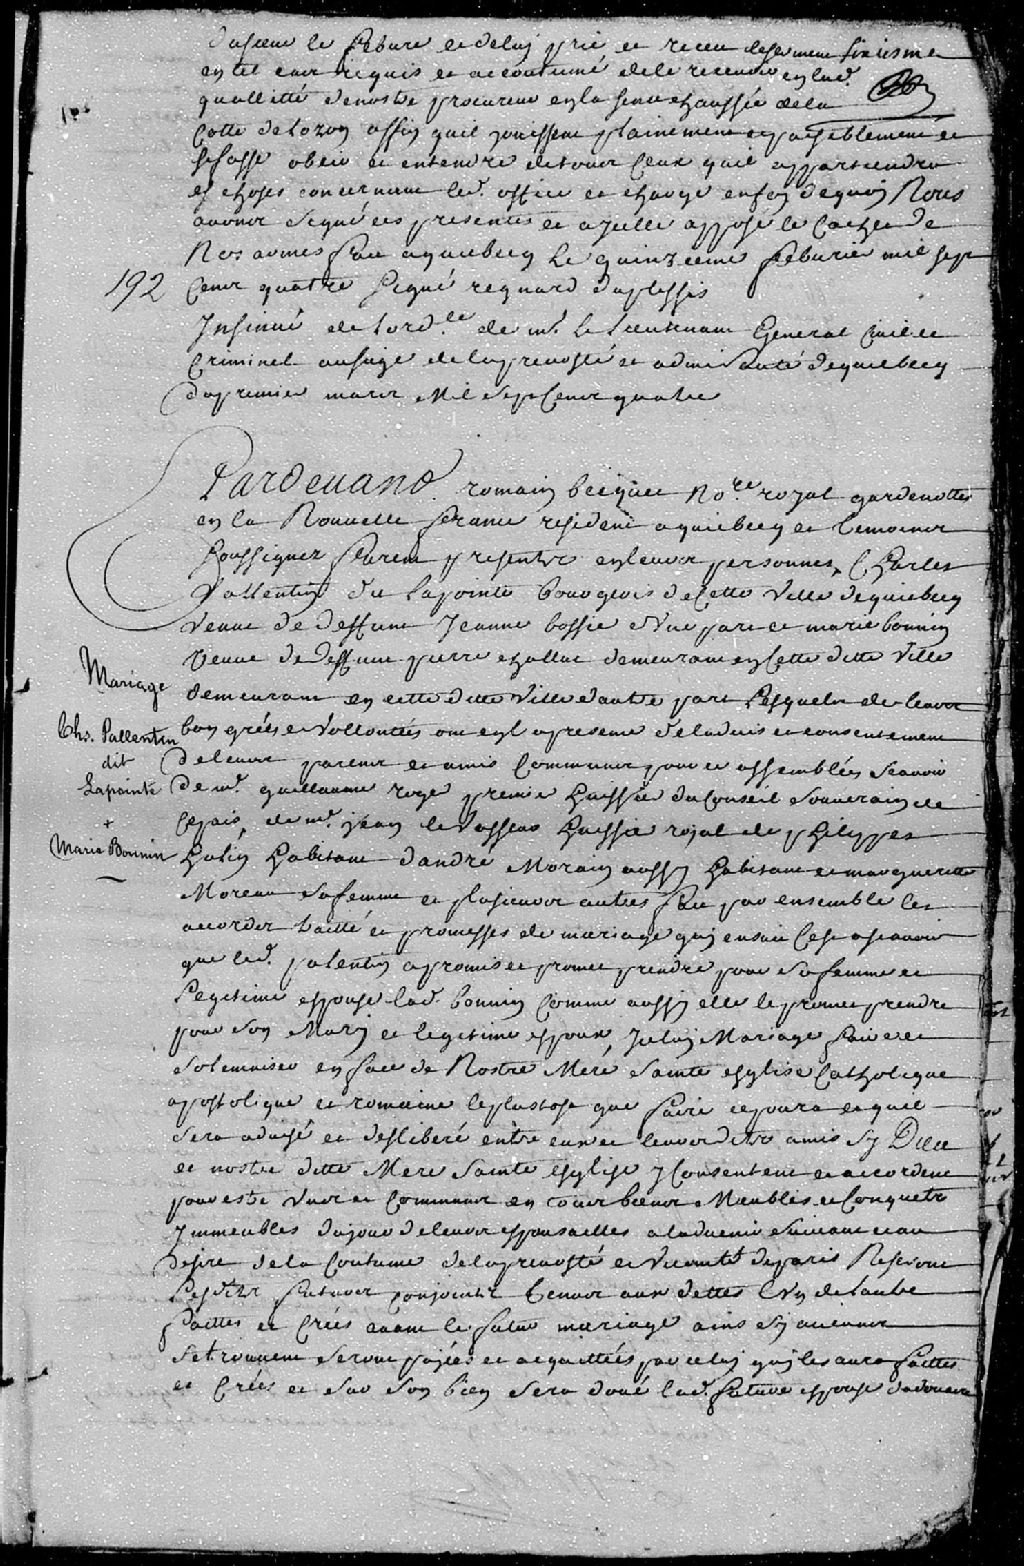 du sieur le febure et deluy pris et receu le serment sixiesme
en tel cas requis et accoutumé de le recevoir en lad.
quallitté de nostre procureur en la senechaussée de la
Cotte de Lozon affin quil jouissent plainement et paisiblement et
se fasse obeir et entendre de tous ceux quil appartiendra
es choses concernant led. office et charge en foy de quoy Nous
avons signé ces presentes et a jcelle apposé le cachet de
Nos armes fait a quiebecq le quinzieme feburier mil sept
192
Cent quatre signé regnard duplessis
Insinué de lord.ce de mr. le Lieutenant General Civil et
Criminel au siege de la prevosté et admirauté de quiebecq
du premier mars Mil Sept Cent quatre
Pardevand romain becquet No.re royal gardenottes
en la Nouvelle france resident a quiebecq et temoins
soussignez furent presents en leurs personnes Charles
Vallentin dit Lapointe bourgeois de Cette Ville de quiebecq
veuf de deffunte Jeanne bossé d'une part et marie bonnin
Veuve de deffunt pierre challut demeurant en Cette ditte Ville
demeurant en cette ditte Ville d'autre part Lesquels de leurs
Mariage
Chs. Vallentin
dit
Lapointe
+
Marie Bonnin
bon grées et Vollontés ont en la presence de ladvis et consentement
de leurs parents et amis Communs pour ce assemblés scavoir
De mr. guillaume roge premier huissier du Conseil Souverain de
Ce pais, de mr. jean levasseur huissier royal de philippes
habitant d'andré Morain aussy habitant et marguerite
Moreau sa femme et plusieurs autres fait par ensemble les
accords traitté et promesses de mariage quy ensuit Cest ascavoir
que led. valentin a promis et promet prendre pour sa femme et
Legitime espouse lad. bonnin Comme aussy elle le promet prendre
pour son Mary et legitime espoux, Jceluy Mariage faire et
solemniser en face de Nostre Mere Sainte esglise Catholique
apostolique et romaine le plustost que faire ce poura et quil
sera advisé et deslibéré entre eux et leurs dits amis sy Dieu
et nostre ditte Mere Sainte esglise y Consentent et accordent
pour estre Uns et Communs en tous biens Meubles et Conquets
Immeubles du jour de leurs espousailles a ladvenir suivant et au
desire de la Coutume de la prevosté et Vicomté de paris
Lesdits futurs conjoints tenus aux dettes l'un de lautre
faittes et Crées avant le futur mariage ains sy aucunes
se trouvent seront payées et acquittées par celuy quy les aura faittes
et Crées et sur son bien sera doué lad. future espouse du douaire